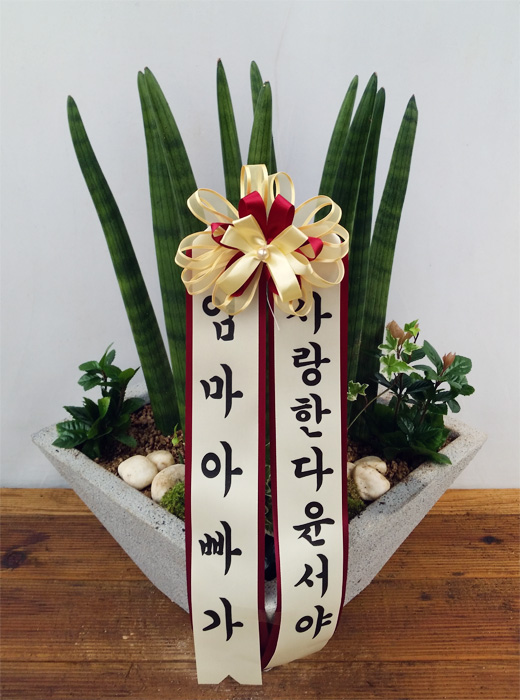 사랑한다윤서야
엄마아빠가